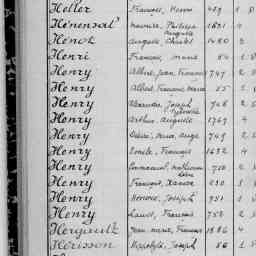 Heller François, Henri 459 1
Hénensal Maurice, Philippe Auguste
Hénok Auguste, Charles 1480 3
Henri François, Marie 54 1
Henry Albert, Jean, François 747 2
Henry Albert, François, Marie 55 1
Henry Alexandre, Joseph 748 2
Henry Arthur, Auguste 1769 4
Henry Marie, Ange 749 2
Henry Emile, François 1692 4
Henry Emmanuel, 750 2
Henry François, 1
Henry Honoré, Joseph 751 1
Henry Louis, François 752 2
Hergault Jean, Marie, François 1886 4
Hérisson Hippolyte, Joseph 56 1